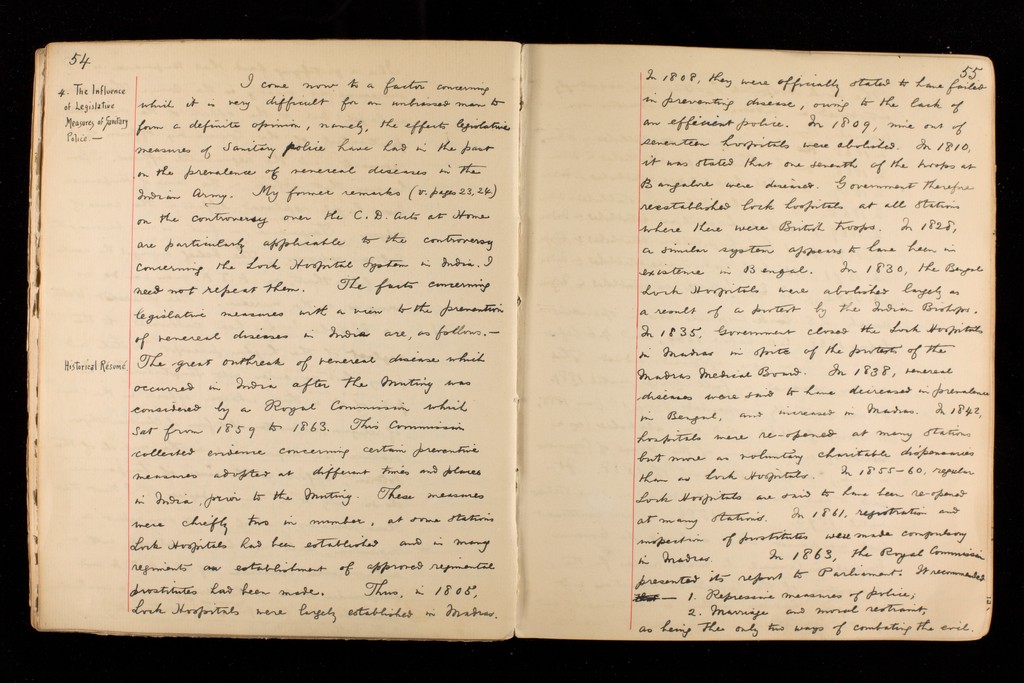 54
4. The Influence
of Legislative
Measures of Sanitary
Police.—
I come now to a factor concerning
which it is very difficult for an unbiased man to
form a definite opinion, namely, the effects legislative
measures of Sanitary police have had in the past
on the prevalence of venereal diseases in the
Indian Army. My former remarks (v. pages 23, 24)
on the controversy over the C. D. Acts at Home
are particularly applicable to the controversy
concerning the Lock Hospital System in India. I
need not repeat them. The facts concerning
legislative measures with a view to the prevention
of venereal diseases in India are, as follows.—
Historical Résumé
The great outbreak of venereal disease which
occurred in India after the Mutiny was
considered by a Royal Commission which
sat from 1859 to 1863. This Commission
collected evidence concerning certain preventive
measures adopted at different times and places
in India, prior to the Mutiny. These measures
were chiefly two in number, at some stations
Lock Hospitals had been established and in many
regiments an establishment of approved regimental
prostitutes had been made. Thus, in 1805,
Lock Hospitals were largely established in Madras.
55
In 1808, they were officially stated to have failed
in preventing disease, owing to the lack of
an efficient police. In 1809, nine out of
seventeen hospitals were abolished. In 1810,
it was stated that one seventh of the troops at
Bangalore were diseased. Government therefore
reestablished lock hospitals at all stations
where there were British troops. In 1828,
a similar system appears to have been in
existence in Bengal. In 1830, the Bengal
Lock Hospitals were abolished largely as
a result of a protest by the Indian Bishops.
In 1835, Government closed the Lock Hospitals
in Madras in spite of the protests of the
Madras Medical Board. In 1838, venereal
diseases were said to have decreased in prevalence
in Bengal, and increased in Madras. In 1842,
hospitals were re-opened at many stations
but more as voluntary charitable dispensaries
than as Lock Hospitals. In 1855–60, regular
Lock Hospitals are said to have been re-opened
at many stations. In 1861, registration and
inspection of prostitutes were made compulsory
in Madras. In 1863, the Royal Commission
presented its report to Parliament. It recommended
— 1. Repressive measures of police;
2. Marriage and moral restraint,
as being the only two ways of combating the evil.